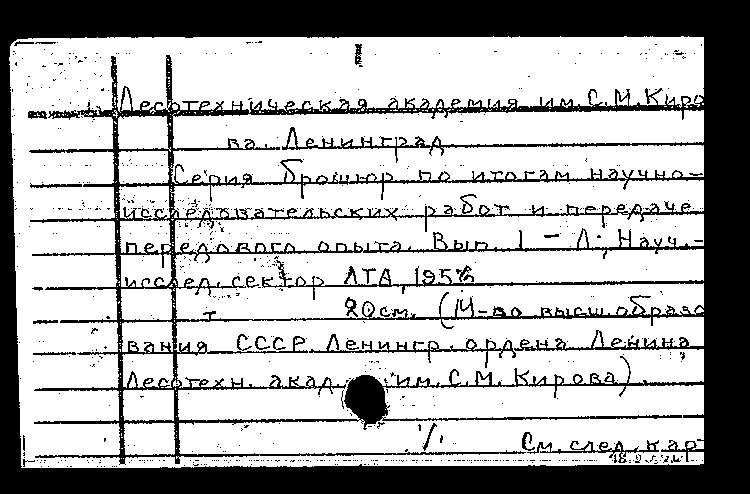 Лесотехническая академия им. С.М.Киро
ва. Ленинград
Серия брошюр по итогам научно-
исследовательских работ и передаче
передового опыта. Вып. 1 – Л., Науч.-
исслед. сектор ЛТА, 195
т 20см. (М-во высш. образо
вания СССР. Ленингр. ордена Ленина
Лесотехн. акад. им. С.М. Кирова).
./. См. след. кар